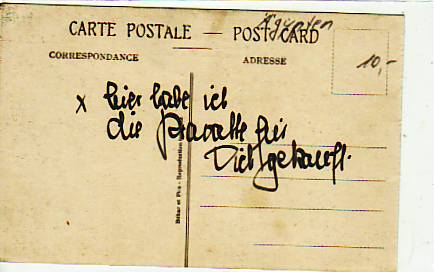 Ägypten
CARTE POSTALE — POST CARD
CORRESPONDANCE
ADRESSE
10,-
x hier habe ich
die Krawatte für
Dich gekauft.
Béhar et Fils - Reproduction